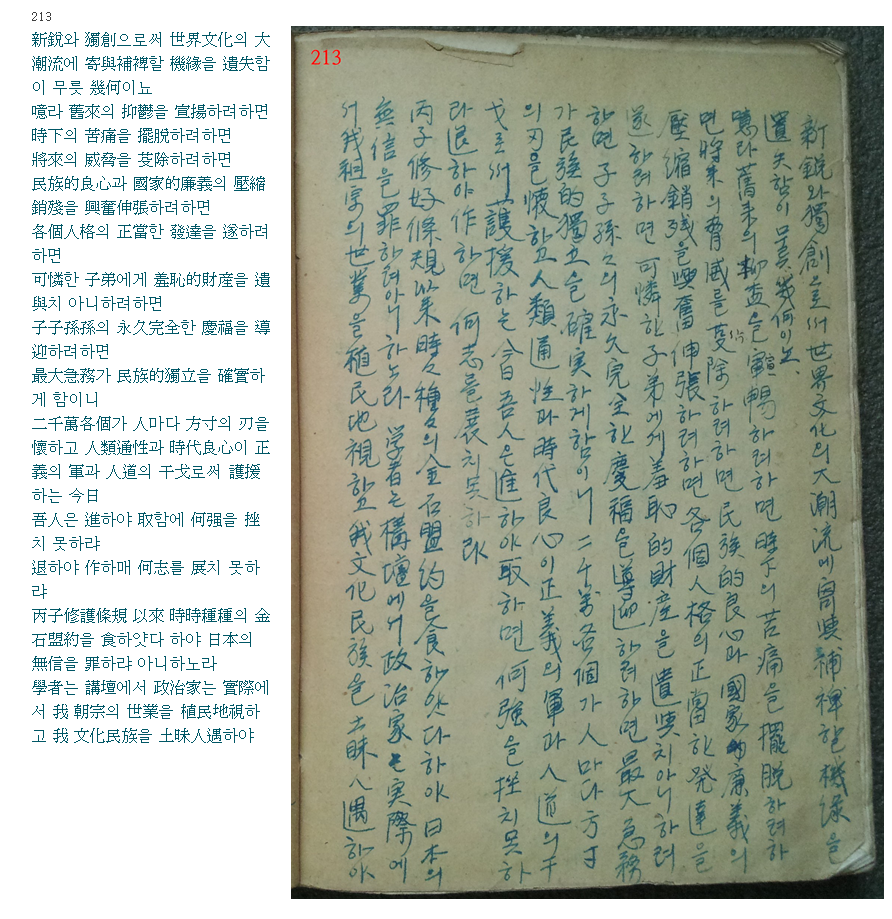 213
新銳와 獨創으로써 世界文化의 大
潮流에 寄與補裨할 機緣을 遺失함
이 무릇 幾何이뇨
噫라 舊來의 抑鬱을 宣揚하려하면
時下의 苦痛을 擺脫하려하면
將來의 威脅을 芟除하려하면
民族的良心과 國家的廉義의 壓縮
銷殘을 興奮伸張하려하면
各個人格의 正當한 發達을 遂하려
하면
可憐한 子弟에게 羞恥的財産을 遺
與치 아니하려하면
子子孫孫의 永久完全한 慶福을 導
迎하려하면
最大急務가 民族的獨立을 確實하
게 함이니
二千萬各個가 人마다 方寸의 刃을
懷하고 人類通性과 時代良心이 正
義의 軍과 人道의 干戈로써 護援
하는 今日
吾人은 進하야 取함에 何强을 挫
치 못하랴
退하야 作하매 何志를 展치 못하
랴
丙子修護條規 以來 時時種種의 金
石盟約을 食하얏다 하야 日本의
無信을 罪하랴 아니하노라
學者는 講壇에서 政治家는 實際에
서 我 朝宗의 世業을 植民地視하
고 我 文化民族을 土昧人遇하야
213
新銳와 獨創으로써 世界文化의 大潮流에 寄與補裨할 機緣을
遺失함이 무릇 幾何이뇨
噫라 舊来의 을 宣暢하려하면 時下의 苦痛을 擺脫하려하
면 將来의 脅威를 芟除하려하면 民族的良心과 國家的廉義의
壓縮銷残을 興奮伸張하려하면 各個人格의 正當한 発達을
遂하려하면 可憐한 子弟에게 羞恥的財産을 遺與치아니하려
하면 子子孫々의 永久完全한 慶福을 導迎하려하면 最大急務
가 民族的獨立을 確実하게 함이니 二千萬各個가 人마다 方寸
의 刃을 懷하고 人類通性과 時代良心이 正義의 軍과 人道의 干
戈로써 護援하는 今日 吾人은 進하야 取하면 何強을 挫치못하
라 退하야 作하면 何志를 展치못하랴
丙子修好條規以来 時々種々의 金石盟約을 食하얏다하야 日本의
無信을 罪하려아니하노라 学者는 構壇에서 政治家는 実際에
서 我祖宗의 世業을 植民地視하고 我文化民族을 土昧人遇하야